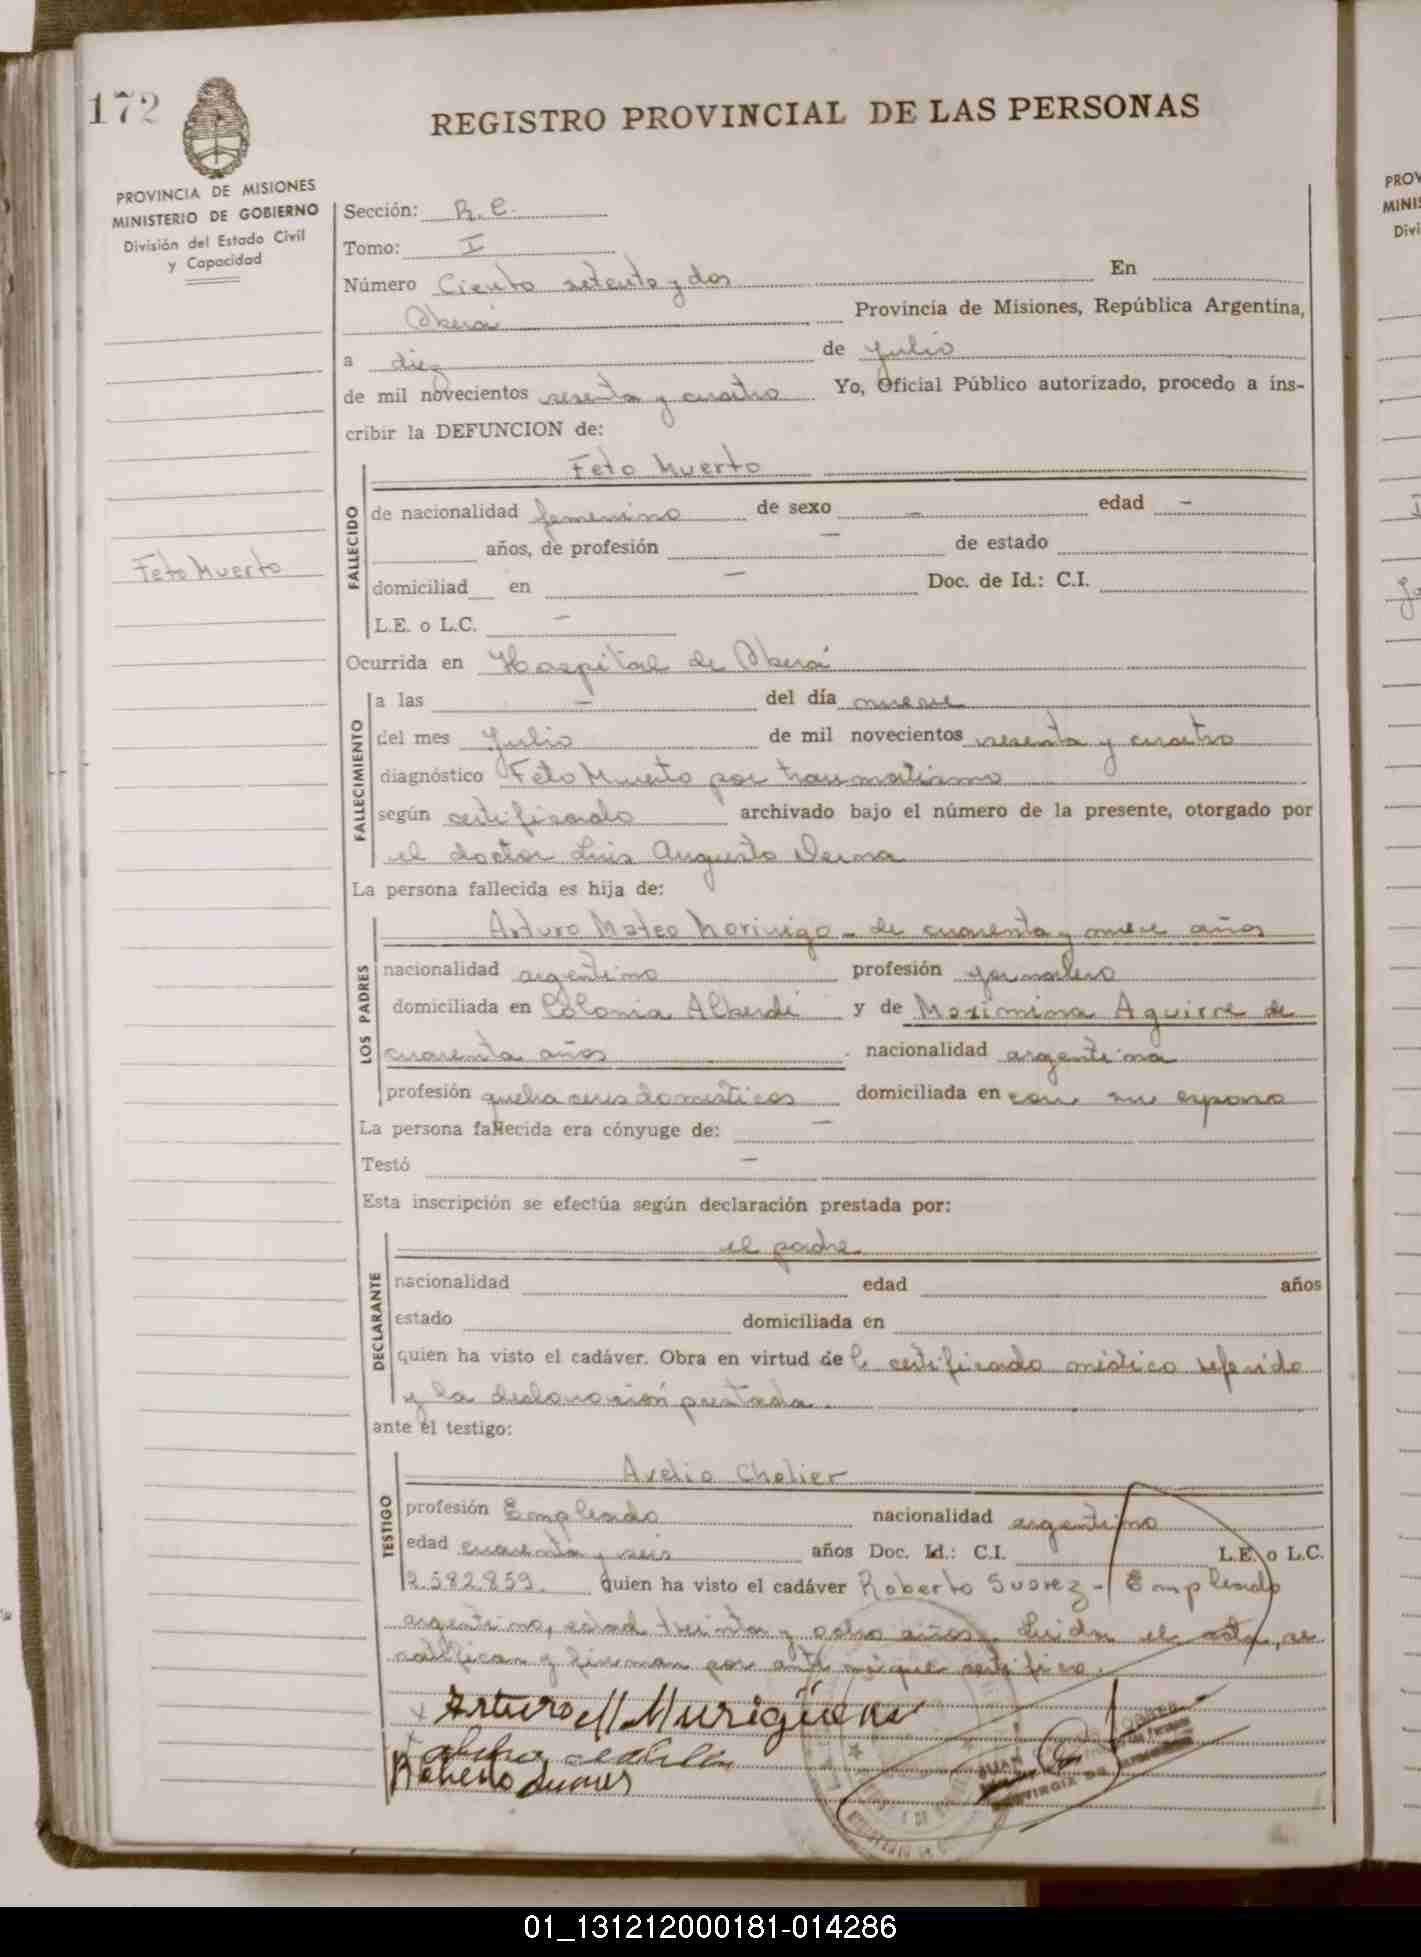 172
REGISTRO PROVINCIAL DE LAS PERSONAS
PROVINCIA DE MISIONES
MINISTERIO DE GOBIERNO
División del Estado Civil
y Capacidad
Sección: R. C.
Tomo: I
Número Ciento setenta y dos En
Oberá Provincia de Misiones, República Argentina,
a diez de Julio
de mil novecientos sesenta y cuatro Yo, Oficial Público autorizado, procedo a ins-
cribir la DEFUNCION de:
Feto Muerto
FALLECIDO
de nacionalidad femenino de sexo - edad -
años, de profesión - de estado
Feto Muerto
domiciliad en - Doc. de Id.: C.I.
L.E. o L.C. -
Ocurrida en Hospital de Oberá
FALLECIMIENTO
a las - del día nueve
del mes Julio de mil novecientos sesenta y cuatro
diagnóstico Feto Muerto por traumatismo
según certificado archivado bajo el número de la presente, otorgado por
el doctor Luis Augusto
La persona fallecida es hija de:
LOS PADRES
Arturo Mateo Morinigo - de cuarenta y nueve años
nacionalidad argentino profesión jornalero
domiciliada en Colonia Alberdi y de Maximina Aguirre de
cuarenta años nacionalidad argentina
profesión quehaceres domesticos domiciliada en con su esposo
La persona fallecida era cónyuge de: -
Testó -
Esta inscripción se efectúa según declaración prestada por:
DECLARANTE
el padre
nacionalidad edad años
estado domiciliada en
quien ha visto el cadáver. Obra en virtud de certificado médico referido
y la declaración prestada.
ante el testigo:
TESTIGO
Avelio Chelier
profesión Empleado nacionalidad argentino
edad cuarenta y seis años Doc. Id.: C.I. L.E. o L.C.
2.582.859. quien ha visto el cadáver Roberto Suarez - Empleado
argentino, edad treinta y ocho años. Leida el acta, se
ratifican y firman por ante mi que certifico.
Arturo M
Roberto Suarez
JUAN
PROVINCIA DE
PROV
MINIS
Divi
01_131212000181-014286